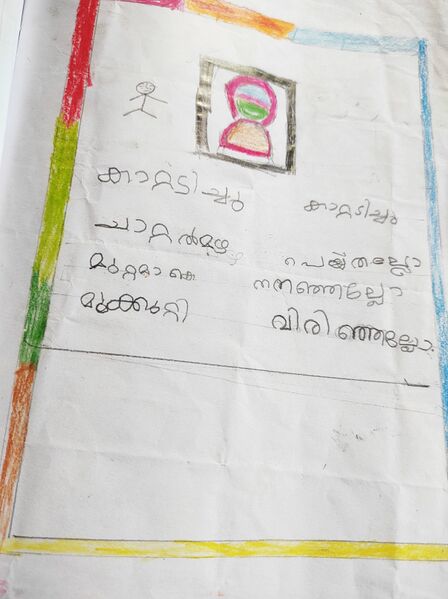 കാറ്റടിച്ചു കാറ്റടിച്ചു
ചാറ്റൽമഴ പെയ്തല്ലോ
മുറ്റമാകെ നനഞ്ഞല്ലോ
മുക്കുറ്റി വിരിഞ്ഞല്ലോ.